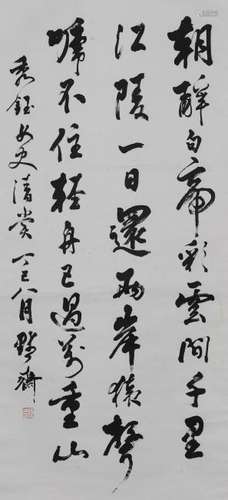 朝辭白帝彩雲間千里
江陵一日還兩岸猿聲
嗁不住輕舟已過萬重山
秀鈺女史清賞 丁巳八月